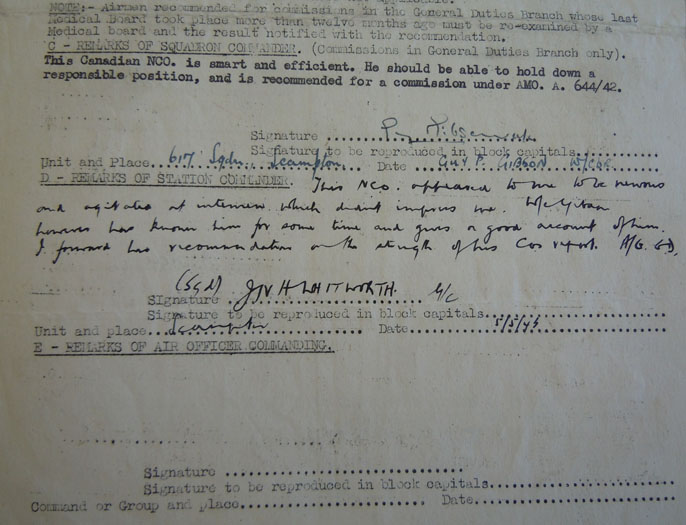 NOTE:- Airmen recommended for commissions in the General Duties Branch whose last
Medical Board took place more than twelve months ago must be re-examined by a
Medical board and the result notified with the recommendation.
C - REMARKS OF SQUADRON COMMANDER. (Commissions in General Duties Branch only).
This Canadian NCO. is smart and efficient. He should be able to hold down a
responsible position, and is recommended for a commission under AMO. A. 644/42.
Signature
Signature to be reproduced in block capitals
Unit and Place 617 Sqdn. Scampton. Date GUY P. GIBSON W/CDR.
D - REMARKS OF STATION COMMANDER. This NCO. appeared to me to be nervous
and agitated at interview which didnt impress me. W/C Gibson
however has known him for some time and gives a good account of him.
I forward his recommendation on the strength of his COs report.
(Sgd) JNH WHITWORTH. G/C
Signature
Signature to be reproduced in block capitals
Unit and place Scampton Date 5/5/43
E - REMARKS OF AIR OFFICER COMMANDING.
Signature
Signature to be reproduced in block capitals
Command or Group and place Date